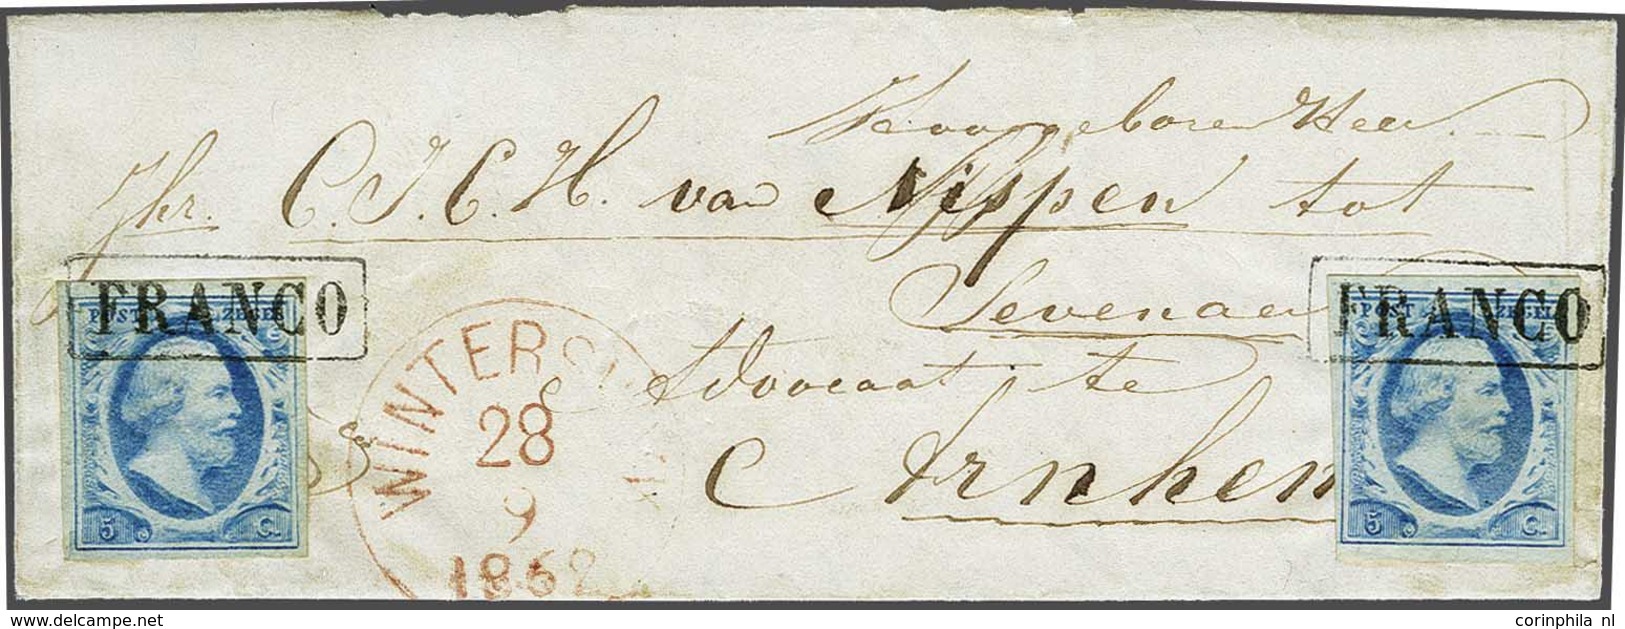 Hooggeboren Heer
Jhr. C. J. C. H. van Nispen tot
Sevenaer
Advocaat te
Arnhem
FRANCO
POST ZEGEL
5 C.
WINTERSW
28
9
1862
FRANCO
POST ZEGEL
5 C.
www.delcampe.net
corinphila nl